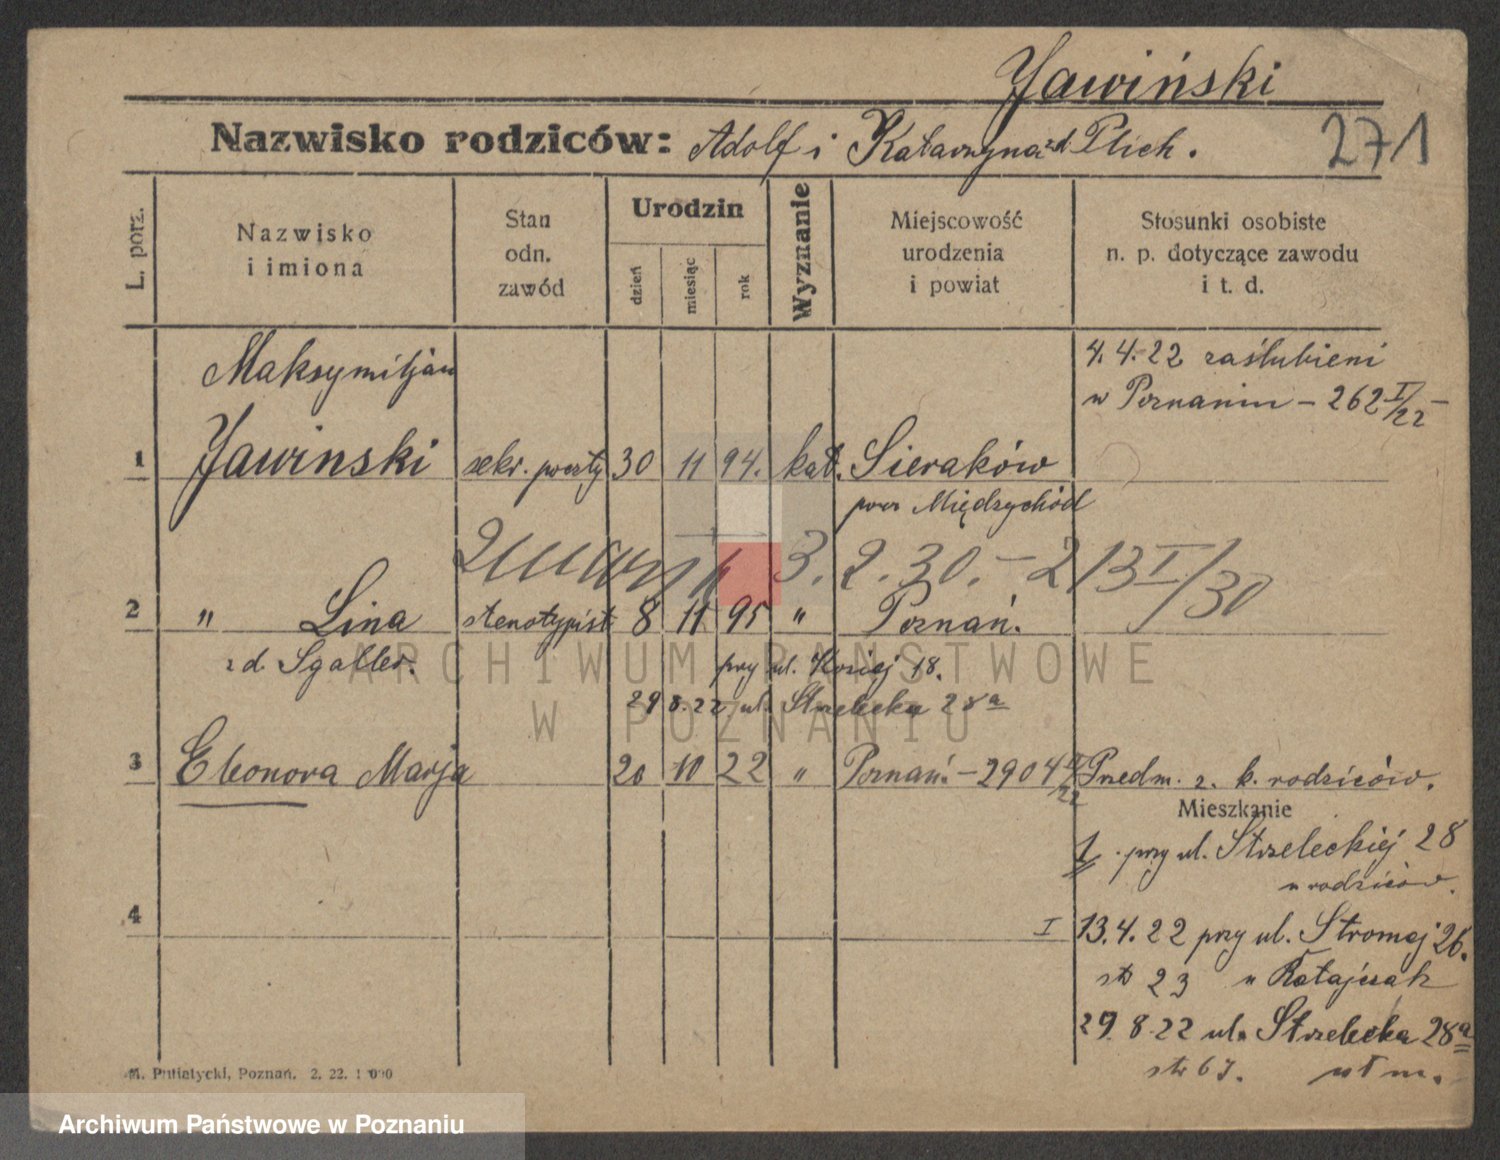 Jawiński
Nazwisko rodziców: Adolf i Katarzyna zd Plich.
271
L. porz.
Nazwisko i imiona
Stan odn. zawód
Urodzin
dzień
miesiąc
rok
Wyznanie
Miejscowość urodzenia i powiat
Stosunki osobiste n. p. dotyczące zawodu i t. d.
4.4.22 zaślubieni
w Poznaniu – 262 I/22 –
Maksymiljan
1 Jawinski sekr. poczty 30 11 94. kat. Sieraków
pow Międzychód
zmarł 3.2.30. – 213 I/30
2 " Lina stenotypist 8 11 95 " Poznań.
zd. Sgaller.
przy ul. Koziej 18.
29 8.22 ul. Strzelecka 28a
3 Eleonora Marja 20 10 22 " Poznań – 2904 II/22 Przedm. z. k. rodziców.
Mieszkanie
I przy ul. Strzeleckiej 28
u rodziców.
4
I 13.4.22 przy ul. Stromej 26.
str 23 u Ratajczak
29.8.22 ul. Strzelecka 28a
str 67. wł m.
M. Putiatycki, Poznań. 2. 22. 1000
ARCHIWUM PAŃSTWOWE
W POZNANIU
Archiwum Państwowe w Poznaniu